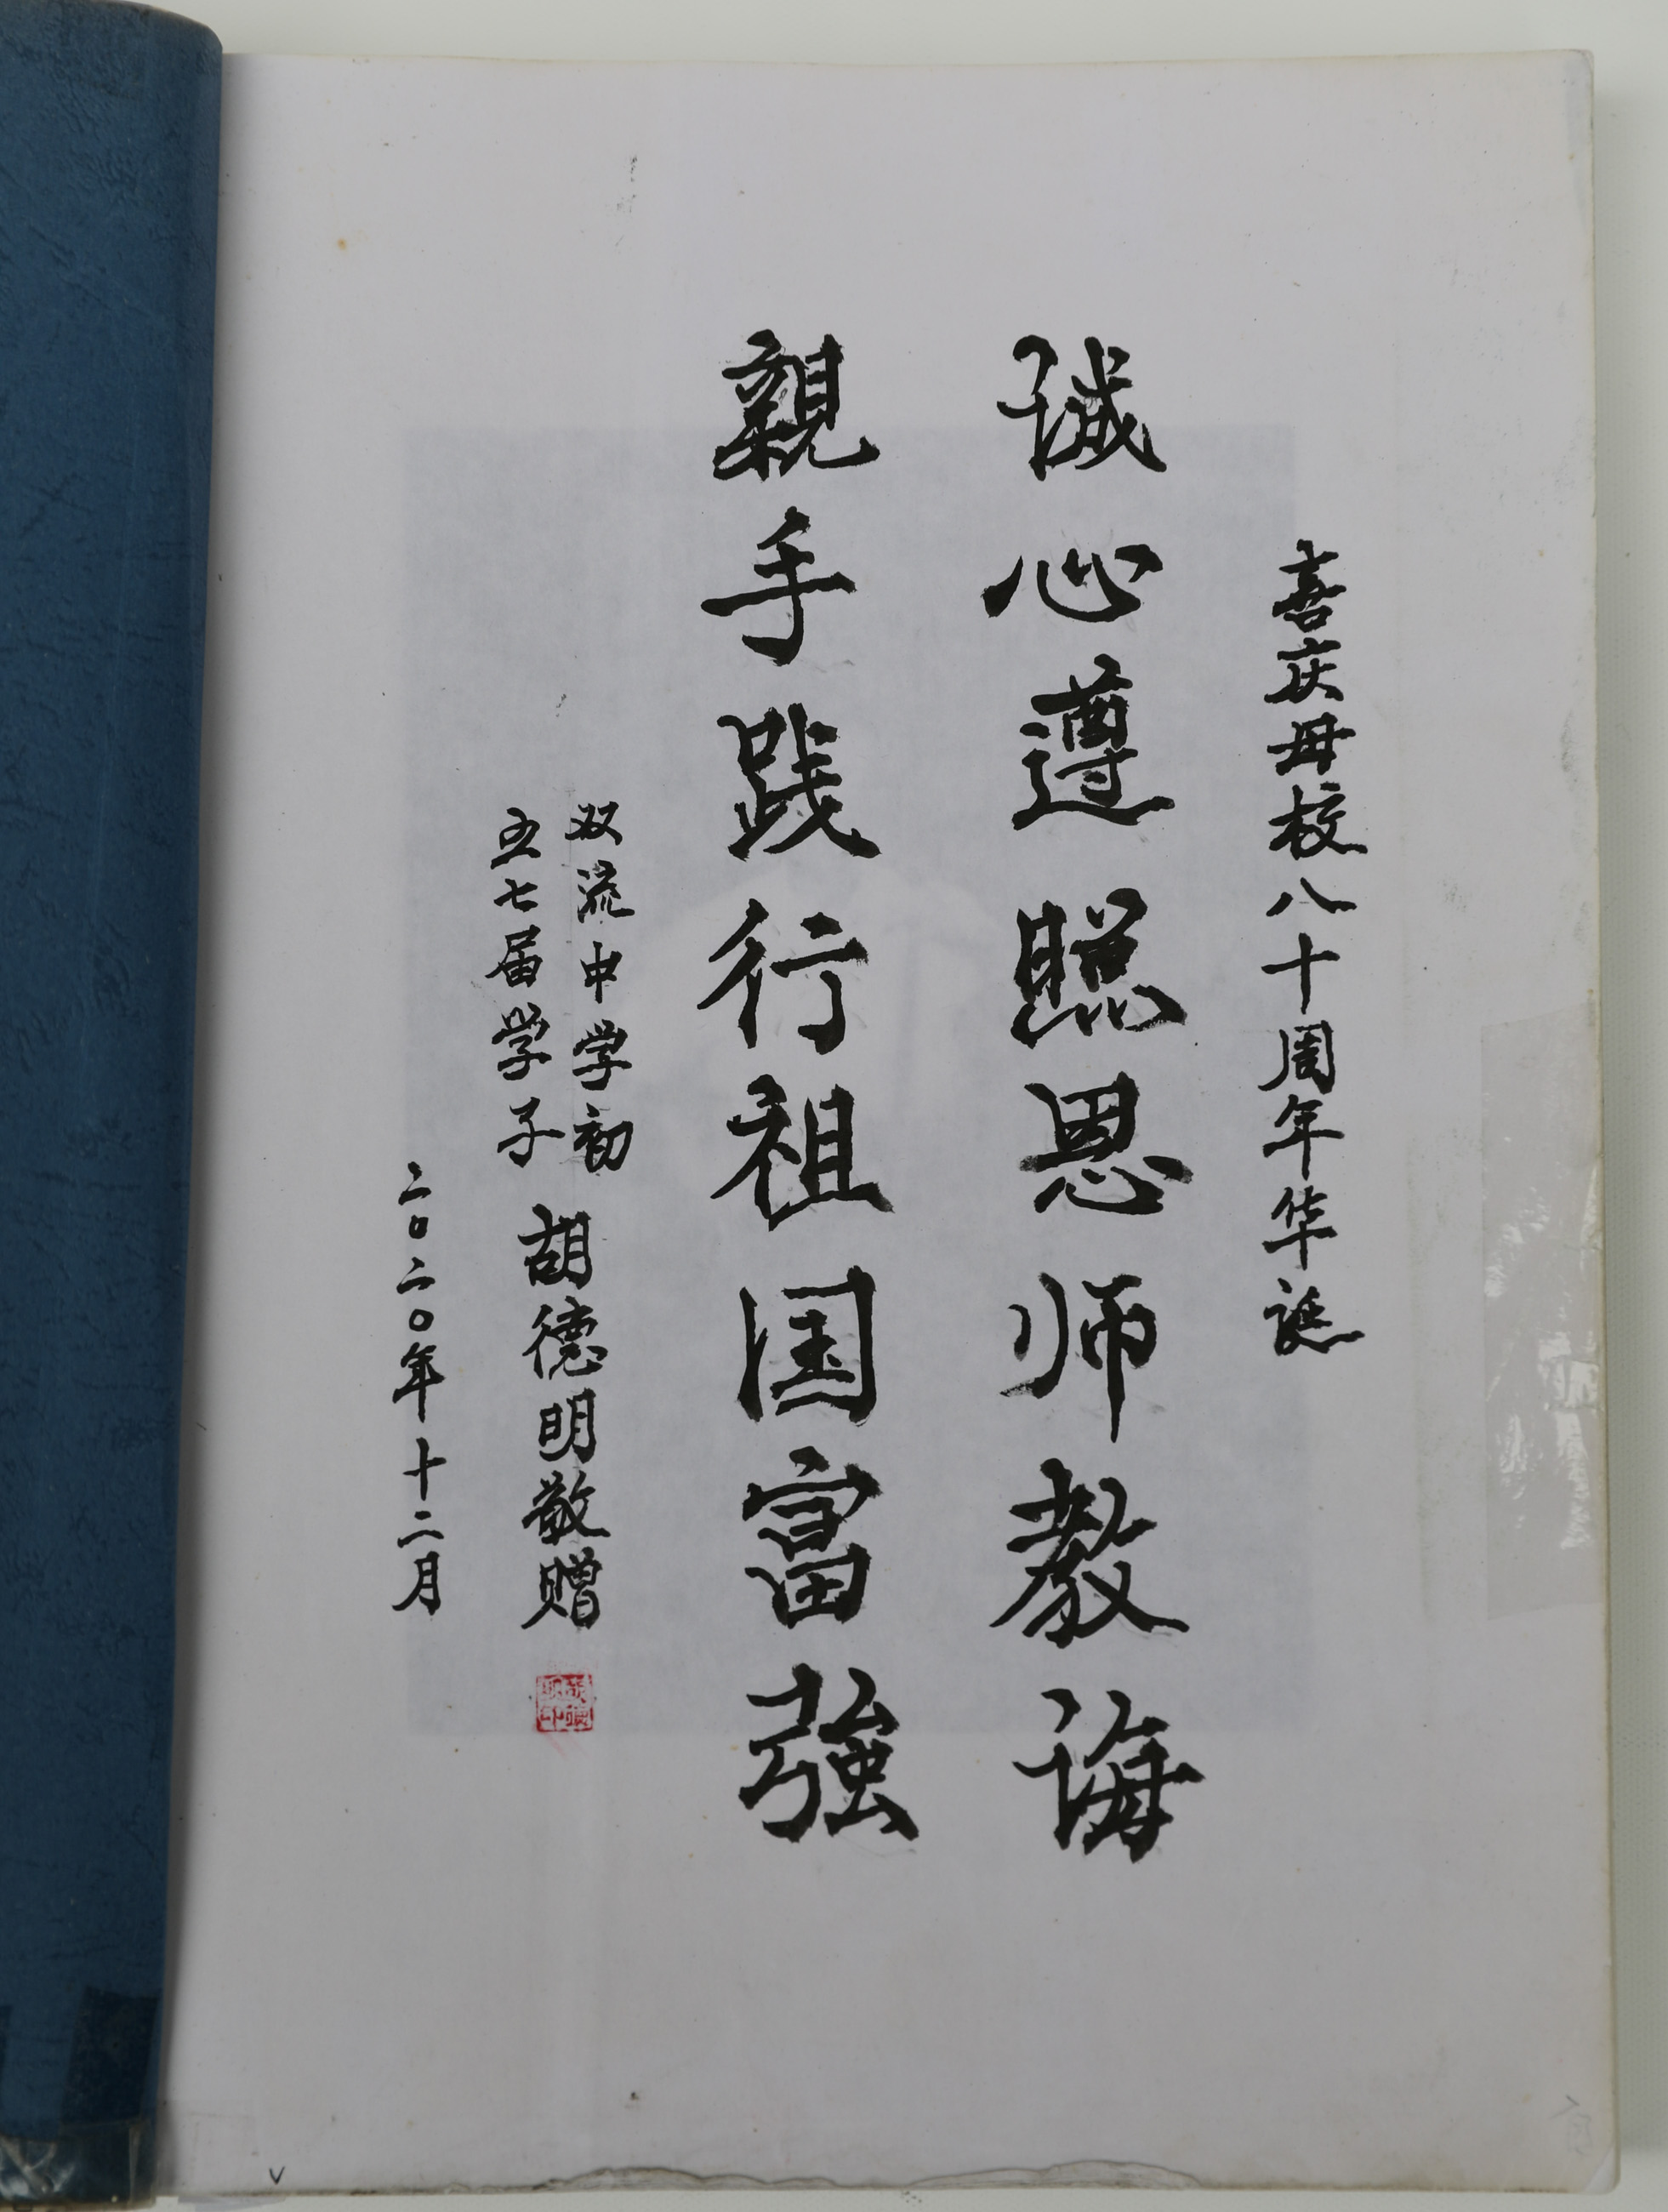 喜庆母校八十周年华诞
诚心遵照恩师教诲
親手践行祖国富強
双流中学初
五七届学子
胡德明敬赠
二〇二〇年十二月